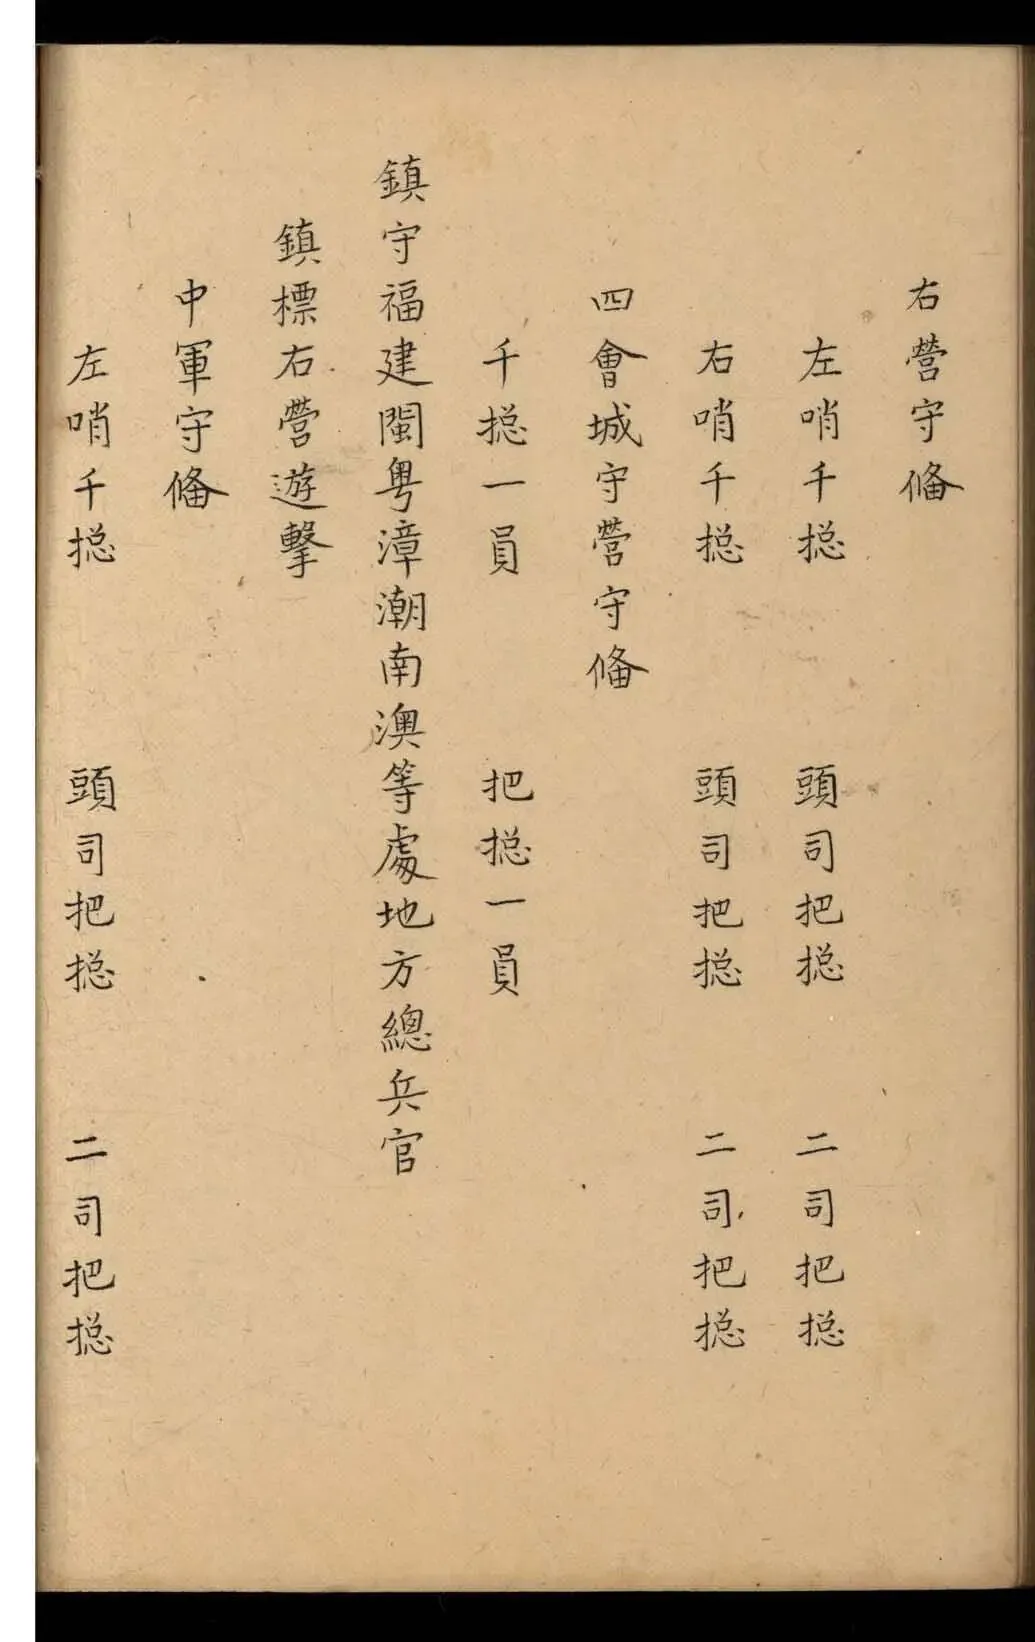 右營守備
左哨千捴 頭司把捴 二司把捴
右哨千捴 頭司把捴 二司把捴
四會城守營守備
千捴一員 把捴一員
鎮守福建閩粤漳潮南澳等處地方總兵官
鎮標右營遊擊
中軍守備
左哨千捴 頭司把捴 二司把捴